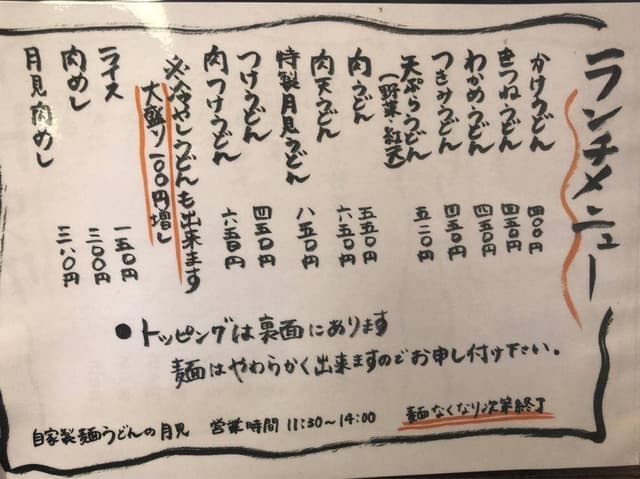 ランチメニュー
かけうどん 四〇〇円
きつねうどん 四五〇円
わかめうどん 四五〇円
つきみうどん 四五〇円
天ぷらうどん 五二〇円
(野菜・紅天)
肉うどん 五五〇円
肉天うどん 六五〇円
特製月見うどん 八五〇円
つけうどん 四五〇円
肉つけうどん 六五〇円
※冷やしうどんも出来ます
大盛り一〇〇円増し
ライス 一五〇円
肉めし 三〇〇円
月見肉めし 三八〇円
●トッピングは裏面にあります
麺はやわらかく出来ますのでお申し付け下さい。
麺なくなり次第終了
自家製麺うどんの月見 営業時間 11:30~14:00